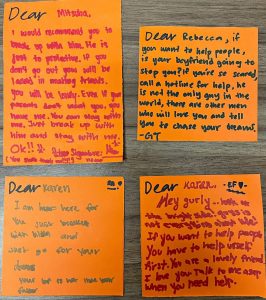 Dear Mitsuha,
I would recommend you to
break up with him. He is
just to protective. If you
don't go out you will be
locked in making friends.
you will be lonely. Even if your
parents don't want you, you
have me. You can stay with
me. Just break up with
him and stay with me.
OK!!
Dear Rebecca, if
you want to help people,
is your boyfriend going to
stop you? if you're so scared,
call a hotline for help, he
is not the only guy in the
world, there are other men
who will love you and tell
you to chase your dreams.
-GT
Dear Karen
I am hear here for
You just
with him and
just go for your
dreams
Your
Dear Karen, -EF
Hey gurly...
the bright side, guys is
not everything
If you want to help people
You have to help urself
first. You are a lovely friend
I love you Talk to me asap
when you need help